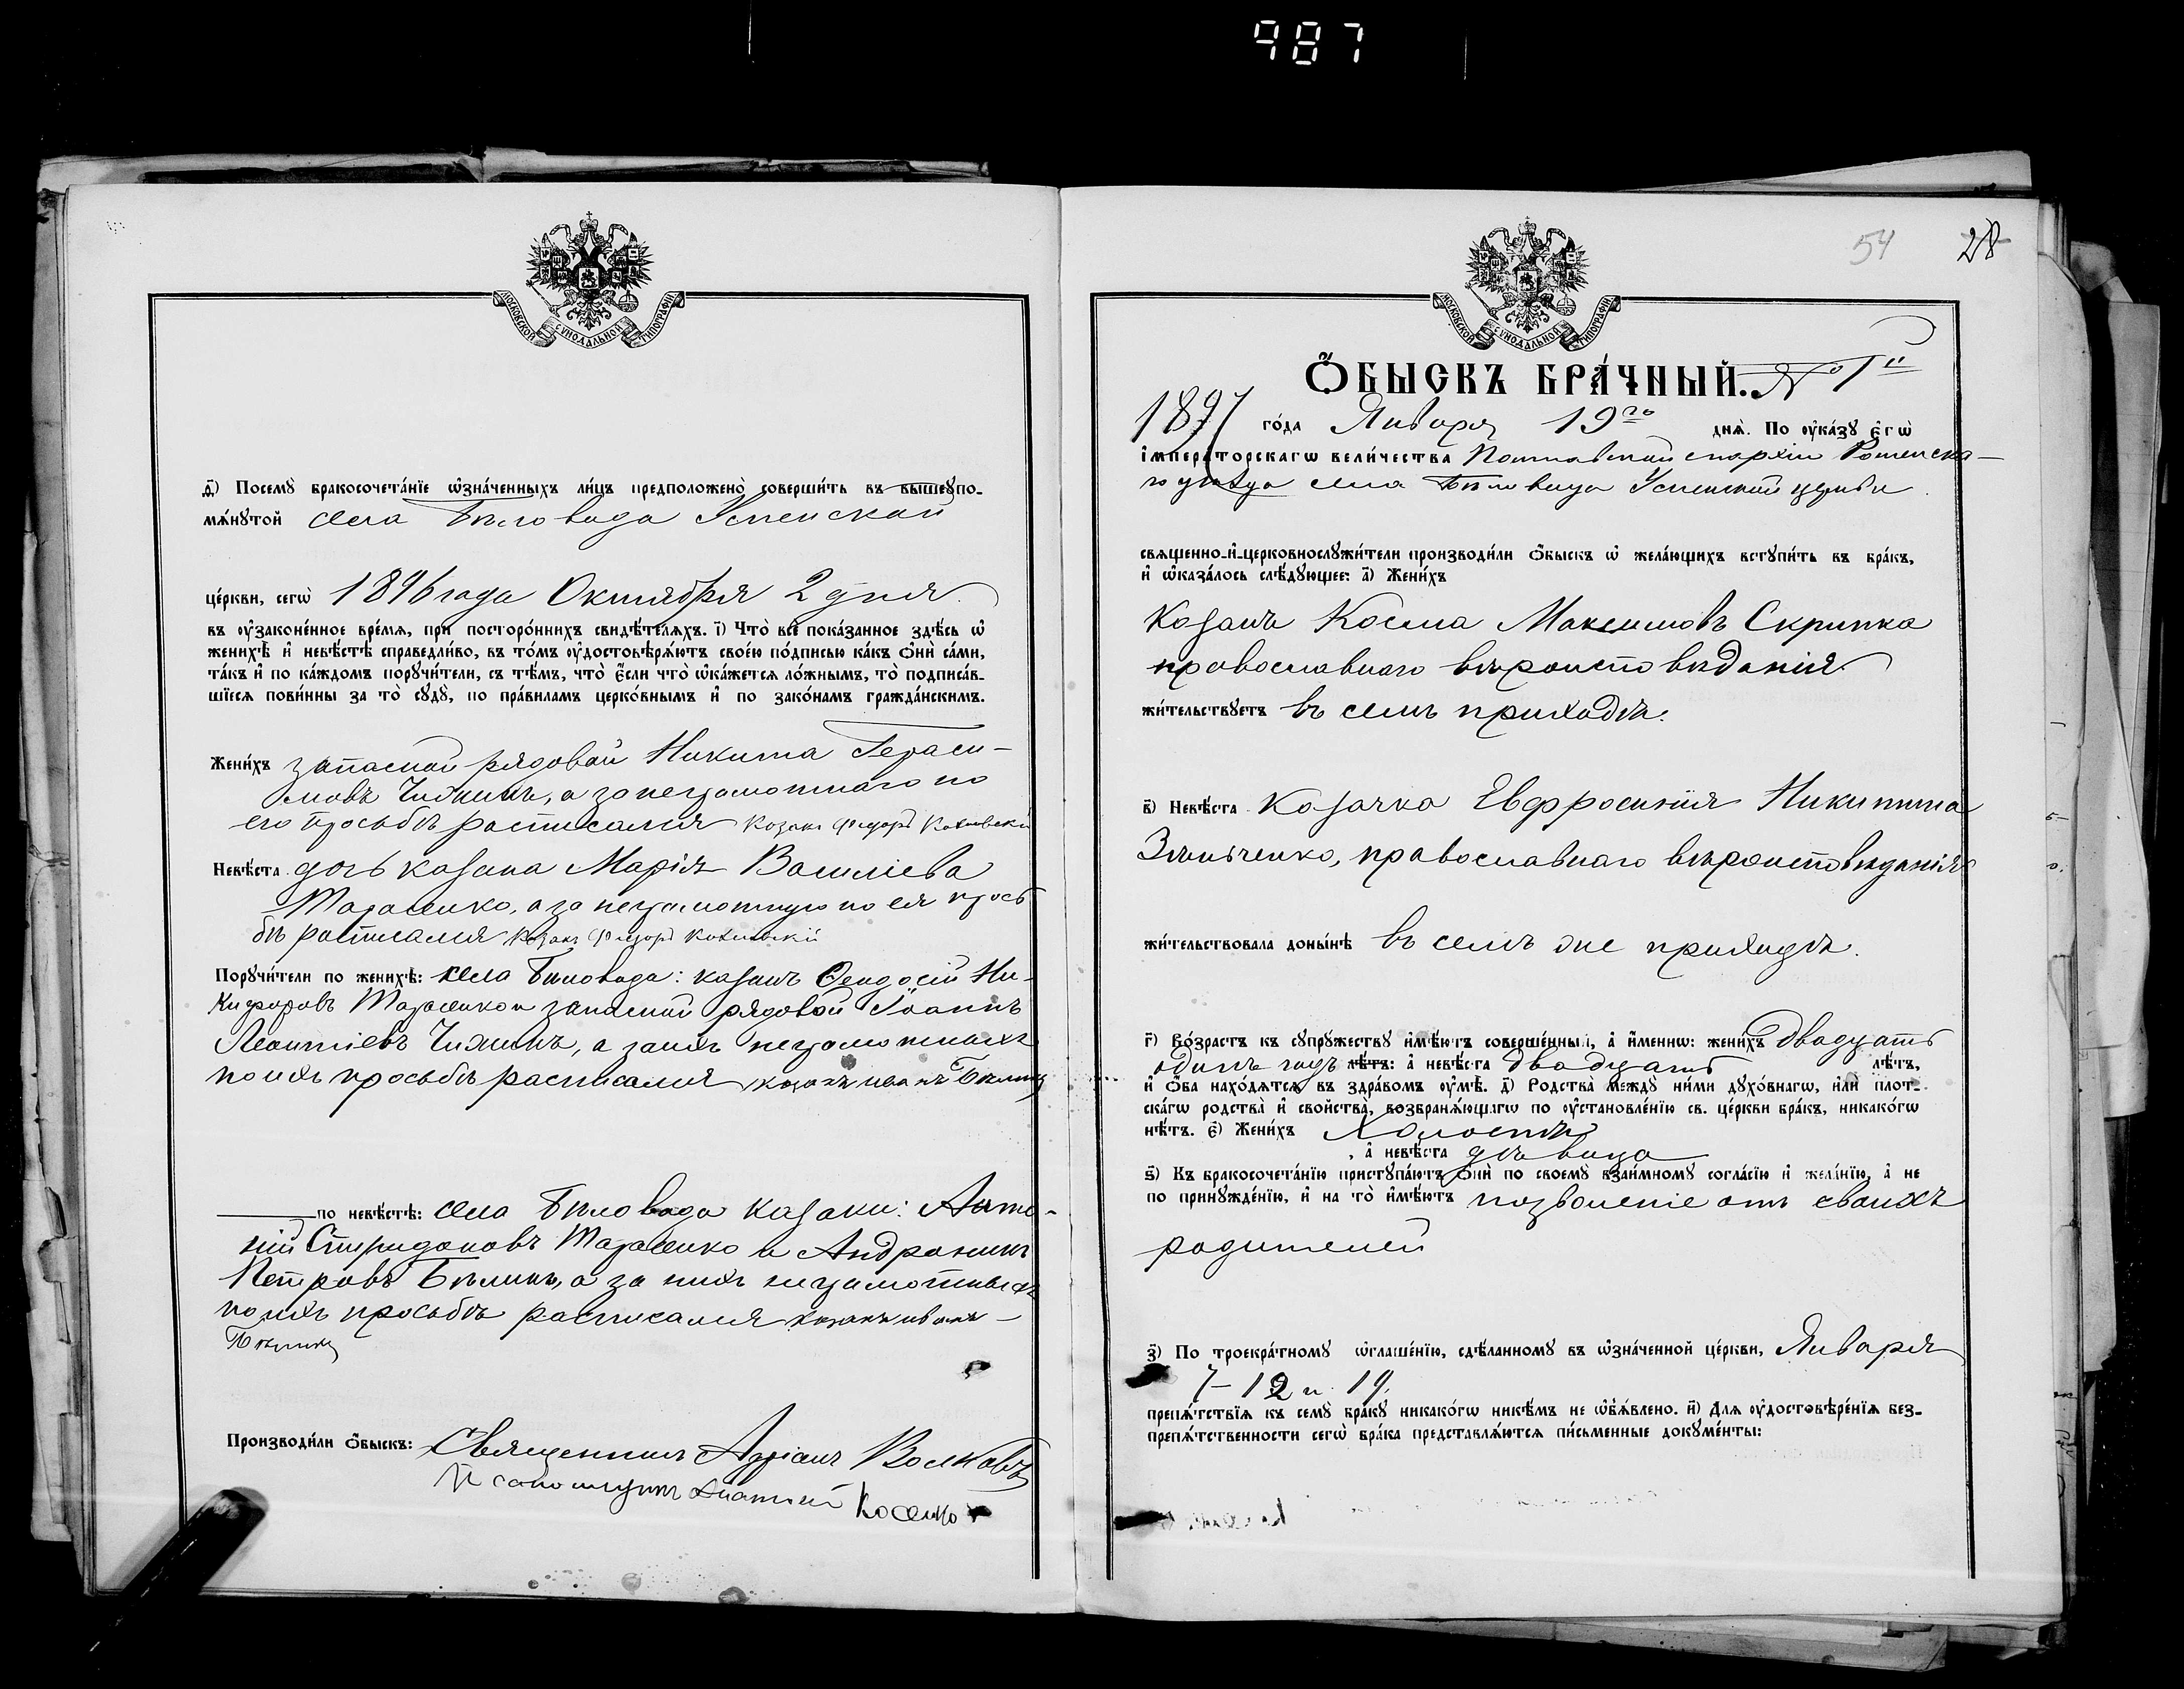 987
МОСКОВСКОЙ СѴНОДАЛЬНОЙ ТИПОГРАФІИ
ѳ҃) Посемꙋ̀ бракосочета́нїе ѡ҆зна́ченныхъ ли́цъ предположено̀ соверши́ть въ вышеꙋпо-
мѧ́нꙋтой села Бѣловода Успенской
це́ркви, сегѡ̀ 1896 года Октября 2 дня
въ ᲂу҆зако́ненное вре́мѧ, при посторо́ннихъ свидѣ́телѧхъ. і҃) Что̀ всѐ пока́занное здѣ́сь ѡ҆
женихѣ̀ и҆ невѣ́стѣ справедли́во, въ то́мъ ᲂу҆достовѣрѧ́ютъ свое́ю по́дписью ка́къ ѻ҆нѝ са́ми,
та́къ и҆ по ка́ждомъ порꙋчи́тели, съ тѣ́мъ, что̀ є҆́сли что̀ ѡ҆ка́жетсѧ ло́жнымъ, то̀ подписа́в-
шїесѧ пови́нны за то̀ сꙋдꙋ̀, по пра́виламъ церко́внымъ и҆ по зако́намъ гражда́нскимъ.
Жени́хъ запасной рядовой Никита Гераси-
мовъ Чижикъ, а за неграмотнаго по
его просьбѣ расписался козакъ Федоръ
Невѣ́ста дочь козака Марія Василіева
Тарасенко, а за неграмотную по ея прось
бѣ расписался Козакъ Федоръ
Порꙋчи́тели по женихѣ̀: села Бѣловода: козакъ Ѳеодосій Ни-
кифоровъ Тарасенко и запасной рядовой Іоаннъ
Леонтіевъ Чижикъ, а за нихъ неграмотныхъ
по ихъ просьбѣ расписался козакъ иванъ Бѣликъ
по невѣ́стѣ: села Бѣловода козаки: Анто-
ній Спиридоновъ Тарасенко и Андроникъ
Петровъ Бѣликъ, а за нихъ неграмотныхъ
по ихъ просьбѣ расписался козакъ иванъ
Бѣликъ
Производи́ли ѻ҆́быскъ: Священникъ Адріанъ Волковъ
Псаломщикъ Косенко
54 28
МОСКОВСКОЙ СѴНОДАЛЬНОЙ ТИПОГРАФІИ
Ѻ҆́БЫСКЪ БРА́ЧНЫЙ. № 1й
1897 го́да Января 19го днѧ̀. По ᲂу҆ка́зꙋ є҆гѡ̀
і҆мпера́торскагѡ вели́чества Полтавской епархіи Роменска-
го уѣзда села Бѣловода Успенской церкви
свѧщенно-и҆-церковнослꙋжи́тели производи́ли ѻ҆́быскъ ѡ҆ жела́ющихъ встꙋпи́ть въ бра́къ,
и҆ ѡ҆каза́лось слѣ́дꙋющее: а҃) Жени́хъ
Козакъ Косма Максимовъ Скрипка
православнаго вѣроисповѣданія
жи́тельствꙋетъ въ семъ приходѣ.
в҃) Невѣ́ста Козачка Евфросинія Никитина
Зѣньченко, православнаго вѣроисповѣданія
жи́тельствовала доны́нѣ въ семъ же приходѣ.
г҃) Во́зрастъ къ сꙋпрꙋ́жествꙋ и҆мѣ́ютъ соверше́нный, а҆ и҆́меннѡ: жени́хъ двадцать
одинъ годъ лѣ́тъ: а҆ невѣ́ста двадцать лѣ́тъ,
и҆ ѻ҆́ба нахо́дѧтсѧ въ здра́вомъ ᲂу҆мѣ̀. д҃) Родства̀ междꙋ̀ ни́ми дꙋхо́внагѡ, и҆лѝ плот-
ска́гѡ родства̀ и҆ свойства̀, возбранѧ́ющагѡ по ᲂу҆становле́нїю св. це́ркви бра́къ, никако́гѡ
нѣ́тъ. є҃) Жени́хъ Холостъ
, а҆ невѣ́ста дѣвица
ѕ҃) Къ бракосочета́нїю пристꙋпа́ютъ ѻ҆нѝ по своемꙋ̀ взаи́мномꙋ согла́сїю и҆ жела́нїю, а҆ не
по принꙋжде́нїю, и҆ на то̀ и҆мѣ́ютъ позволеніе отъ своихъ
родителей
з҃) По троекра́тномꙋ ѡ҆глаше́нїю, сдѣ́ланномꙋ въ ѡ҆зна́ченной це́ркви, Января
7 – 12 и 19.
препѧ́тствїѧ къ семꙋ̀ бра́кꙋ никако́гѡ никѣ́мъ не ѡ҆б̾ѧ́влено. и҃) Длѧ ᲂу҆достовѣре́нїѧ без-
препѧ́тственности сегѡ̀ бра́ка представлѧ́ютсѧ пи́сьменные докꙋме́нты: